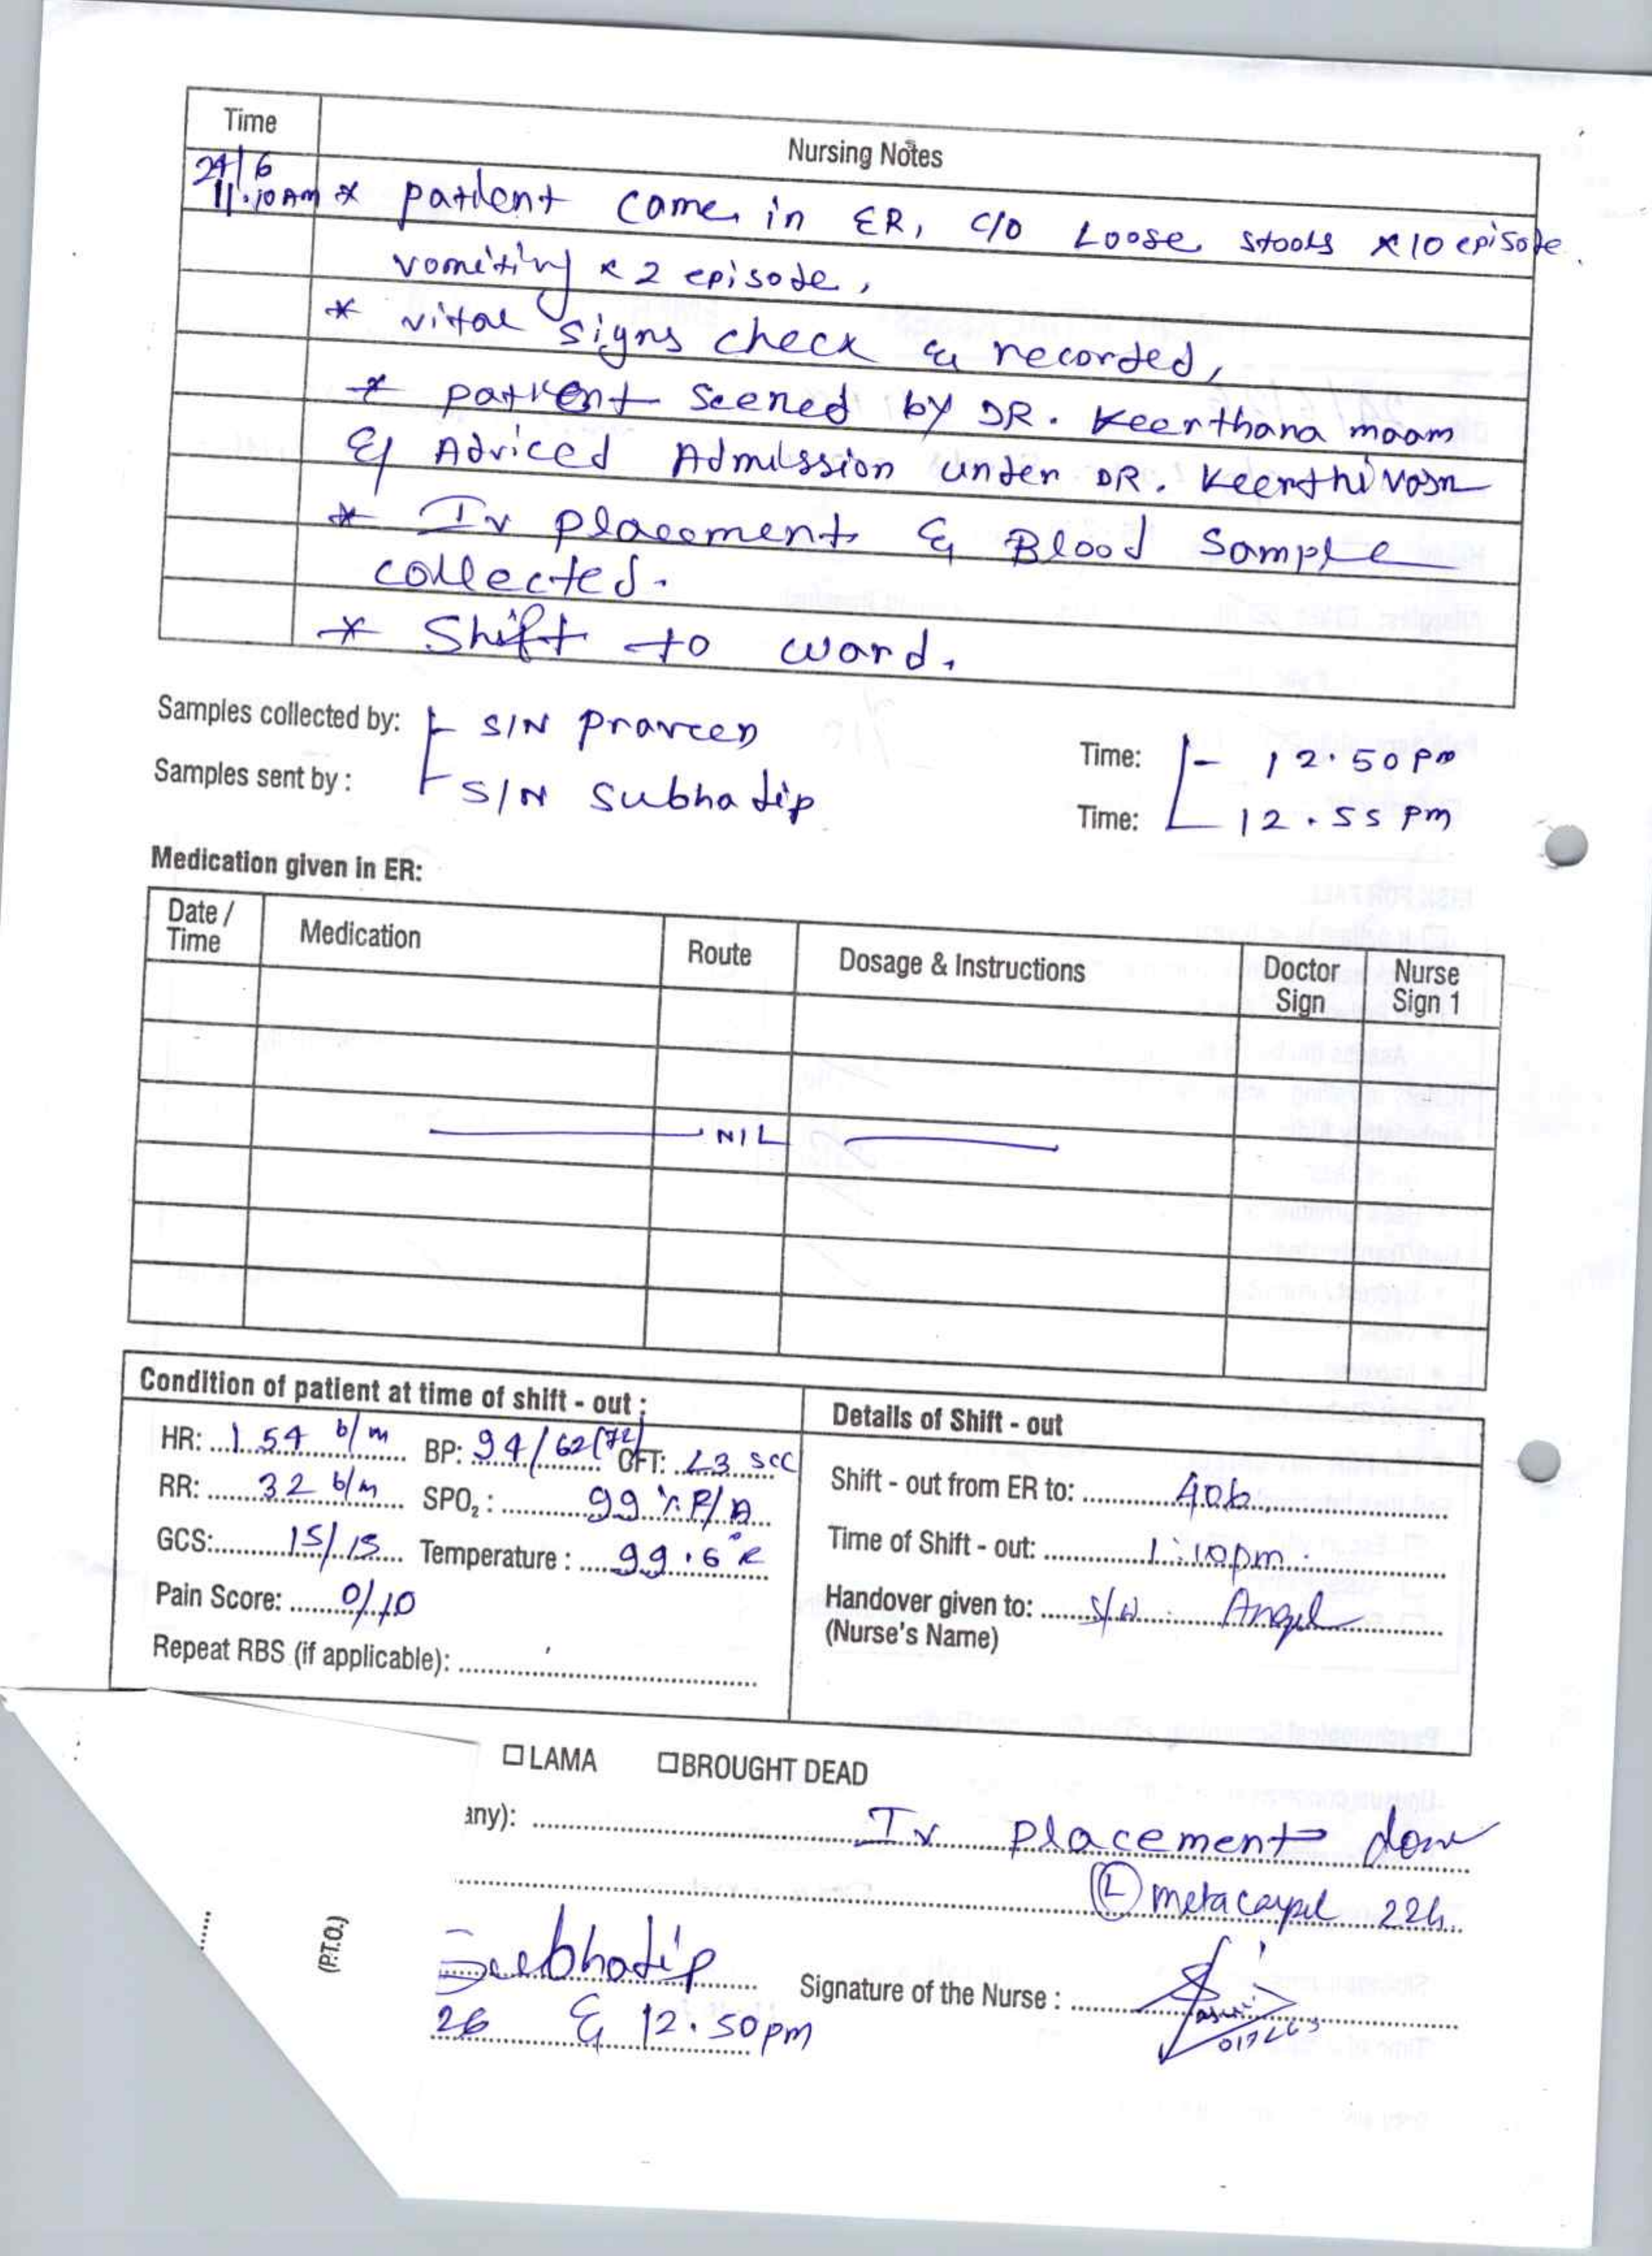 Time Nursing Notes
24/6
11.10AM * patient came in ER, c/o Loose stools x10 episode.
vomiting x 2 episode,
* vital signs check & recorded,
* patient seened by DR. Keerthana maam
& Adviced Admission under DR. Keerthivasn
* Iv placement & Blood Sample
collected.
* Shift to ward.
Samples collected by: S/N Praveen Time: 12.50pm
Samples sent by : S/N Subhadip Time: 12.55 pm
Medication given in ER:
Date / Time Medication Route Dosage & Instructions Doctor Sign Nurse Sign 1
NIL
Condition of patient at time of shift - out : Details of Shift - out
HR: 154 b/m BP: 94/62(72) CFT: <3 sec
RR: 32 b/m SPO₂ : 99 % R/A Shift - out from ER to: 406
GCS: 15/15 Temperature : 99.6°F Time of Shift - out: 1:10pm.
Pain Score: 0/10 Handover given to: S/N Angel
(Nurse's Name)
Repeat RBS (if applicable):
☐ LAMA ☐ BROUGHT DEAD
any): Iv placement done
(L) metacarpel 22h
(P.T.O.)
Subhadip Signature of the Nurse :
26 & 12.50pm